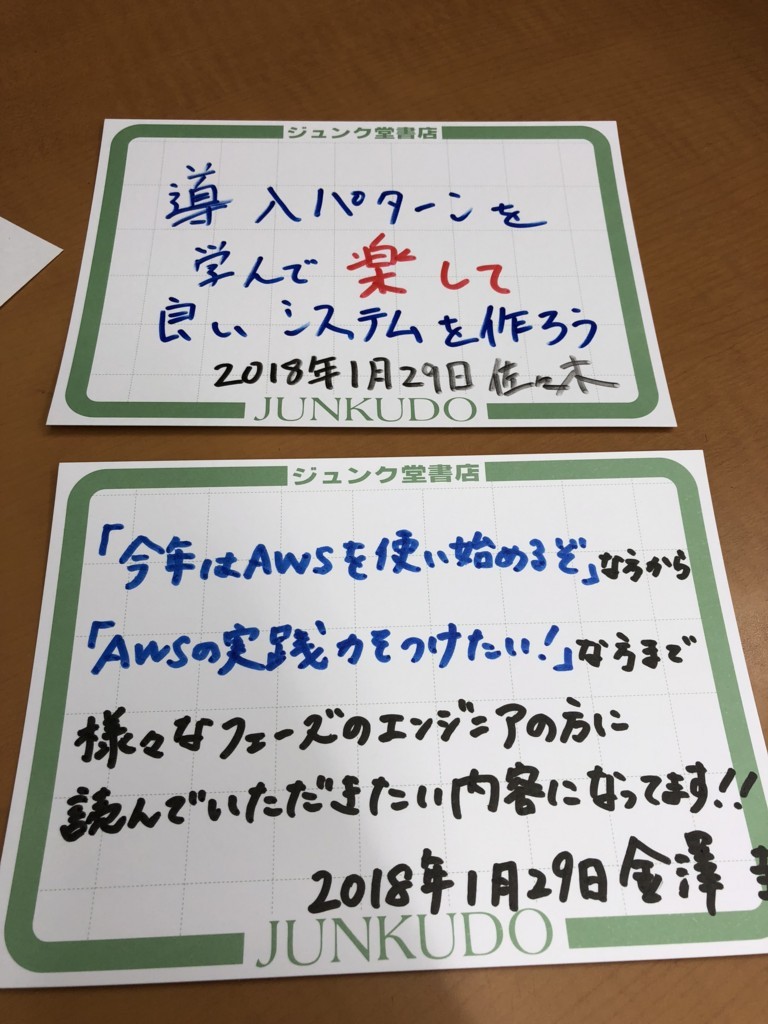 ジュンク堂書店
導入パターンを
学んで楽して
良いシステムを作ろう
2018年1月29日 佐々木
JUNKUDO
ジュンク堂書店
「今年はAWSを使い始めるぞ」な方から
「AWSの実践力をつけたい!」な方まで
様々なフェーズのエンジニアの方に
読んでいただきたい内容になってます!!
2018年1月29日 金澤
JUNKUDO